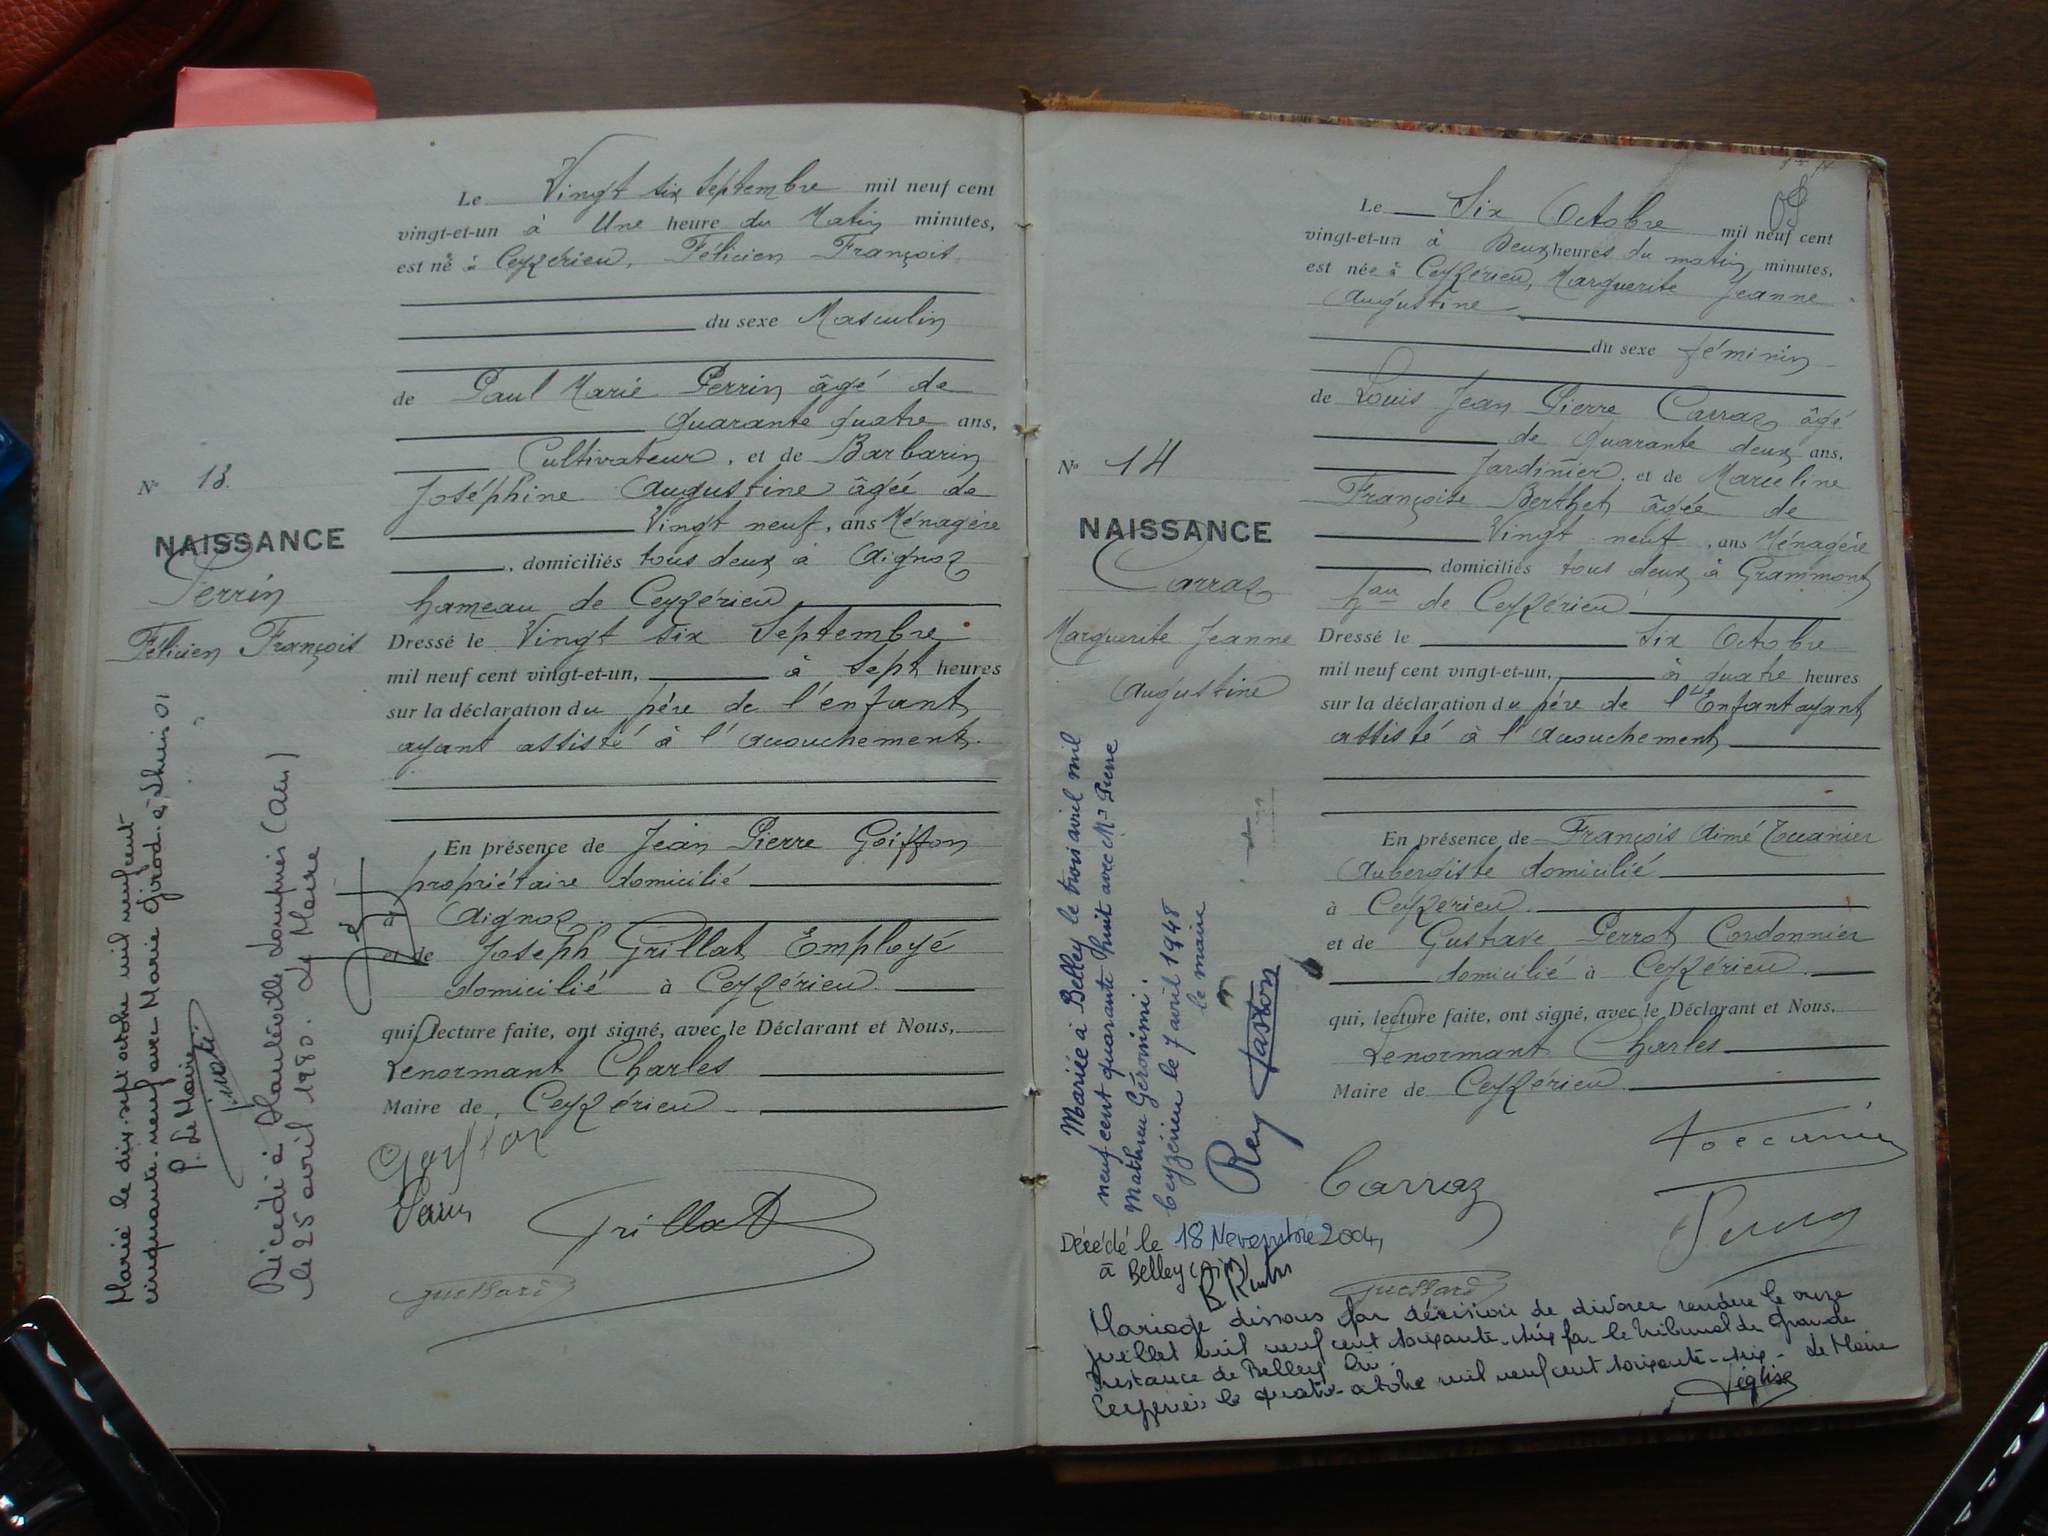 Le Vingt six Septembre mil neuf cent
vingt-et-un à Une heure du Matin minutes,
est né à Ceyzérieu, Félicien François
du sexe Masculin
de Paul Marie Perrin âgé de
quarante quatre ans,
Cultivateur, et de Barbarin
Joséphine Augustine âgée de
Vingt neuf, ans Ménagère
, domiciliés tous deux à Aignoz
hameau de Ceyzérieu
Dressé le Vingt six Septembre
mil neuf cent vingt-et-un, à sept heures
sur la déclaration du père de l'enfant
ayant assisté à l'accouchement.
En présence de Jean Pierre Goiffon
propriétaire domicilié
à Aignoz
et de Joseph Grillat Employé
domicilié à Ceyzérieu
qui, lecture faite, ont signé, avec le Déclarant et Nous,
Lenormant Charles
Maire de Ceyzérieu
Perrin
Grillat
N° 13.
NAISSANCE
Perrin
Félicien François
Marié le dix-sept octobre mil neuf cent
cinquante-neuf avec Marie Girod à Lhuis 01
P. Le Maire
Décédé à Hauteville Lompnes (Ain)
le 25 avril 1980. Le Maire
Le Six Octobre mil neuf cent
vingt-et-un à Deux heures du matin minutes,
est née à Ceyzérieu, Marguerite Jeanne
Augustine
du sexe féminin
de Louis Jean Pierre Carraz âgé
de quarante deux ans,
Jardinier, et de Marceline
Françoise Berthet âgée de
Vingt neuf, ans Ménagère
domiciliés tous deux à Grammont
hau de Ceyzérieu
Dressé le Six Octobre
mil neuf cent vingt-et-un, à quatre heures
sur la déclaration du père de l'Enfant ayant
assisté à l'accouchement
En présence de François Aimé
Aubergiste domicilié
à Ceyzérieu
et de Gustave Perrot Cordonnier
domicilié à Ceyzérieu
qui, lecture faite, ont signé, avec le Déclarant et Nous,
Lenormant Charles
Maire de Ceyzérieu
Carraz
N° 14
NAISSANCE
Carraz
Marguerite Jeanne
Augustine
Mariée à Belley le trois avril mil
neuf cent quarante huit avec Mr Pierre
Mathieu Géronimi.
Ceyzérieu le 7 avril 1948
le maire
Rey Gaston
Décédé le 18 Novembre 2004,
à Belley (Ain)
Mariage dissous par décision de divorce rendue le onze
juillet mil neuf cent soixante-six par le Tribunal de Grande
Instance de Belley Ain.
Ceyzérieu le quatre octobre mil neuf cent soixante-six - Le Maire